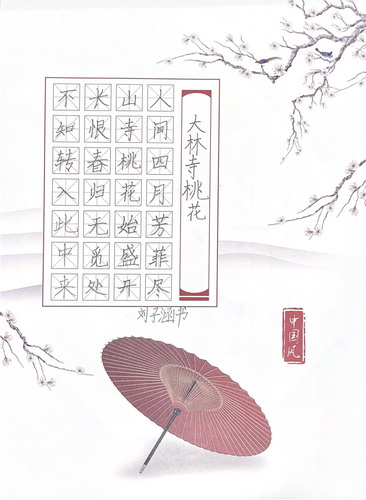 大林寺桃花
人间四月芳菲尽
山寺桃花始盛开
长恨春归无觅处
不知转入此中来
刘子涵书
中国风